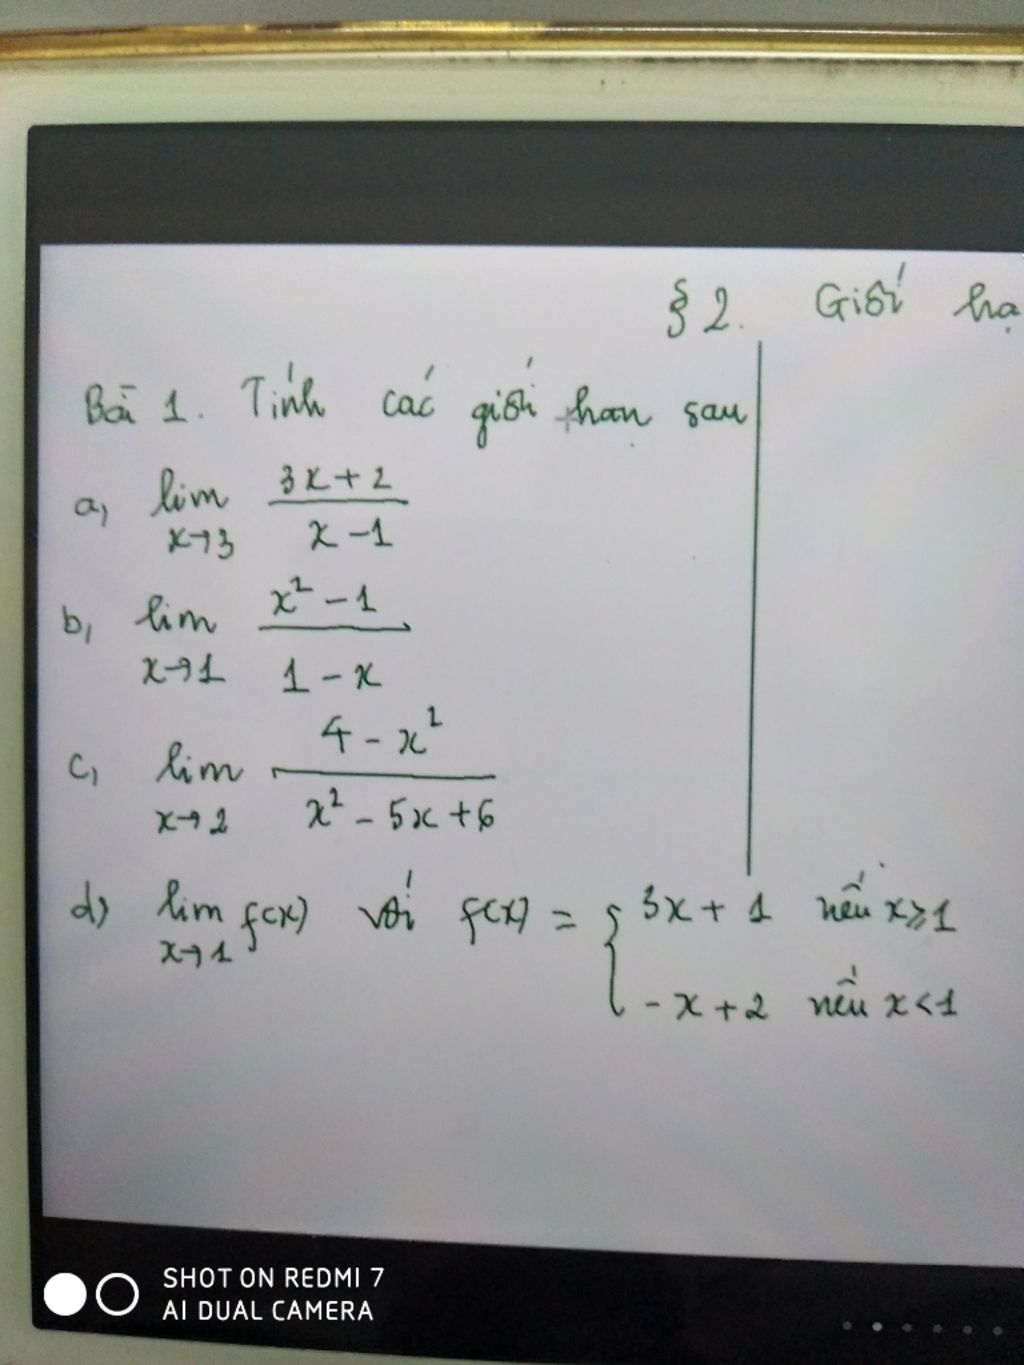 § 2. Giới hạ
Bài 1. Tính các giới hạn sau
a, lim 3x + 2
x→3 x - 1
b, lim x² - 1
x→1 1 - x
c, lim 4 - x²
x→2 x² - 5x + 6
d) lim f(x) với f(x) = { 3x + 1 nếu x ≥ 1
x→1 - x + 2 nếu x < 1
SHOT ON REDMI 7
AI DUAL CAMERA